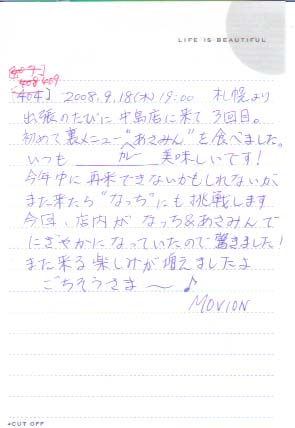 LIFE IS BEAUTIFUL
408 409
[404] 2008,9,18(木) 19:00 札幌より
出張のたびに中島店に来て3回目。
初めて裏メニュー"あさみん"を食べました。
いつも カレー 美味しいです!
今年中に再来できないかもしれないが
また来たら"なっち"にも挑戦します
今回、店内がなっち&あさみんで
にぎやかになっていたので驚きました!
また来る楽しみが増えましたよ
ごちそうさま〜♪
MOVION
CUT OFF